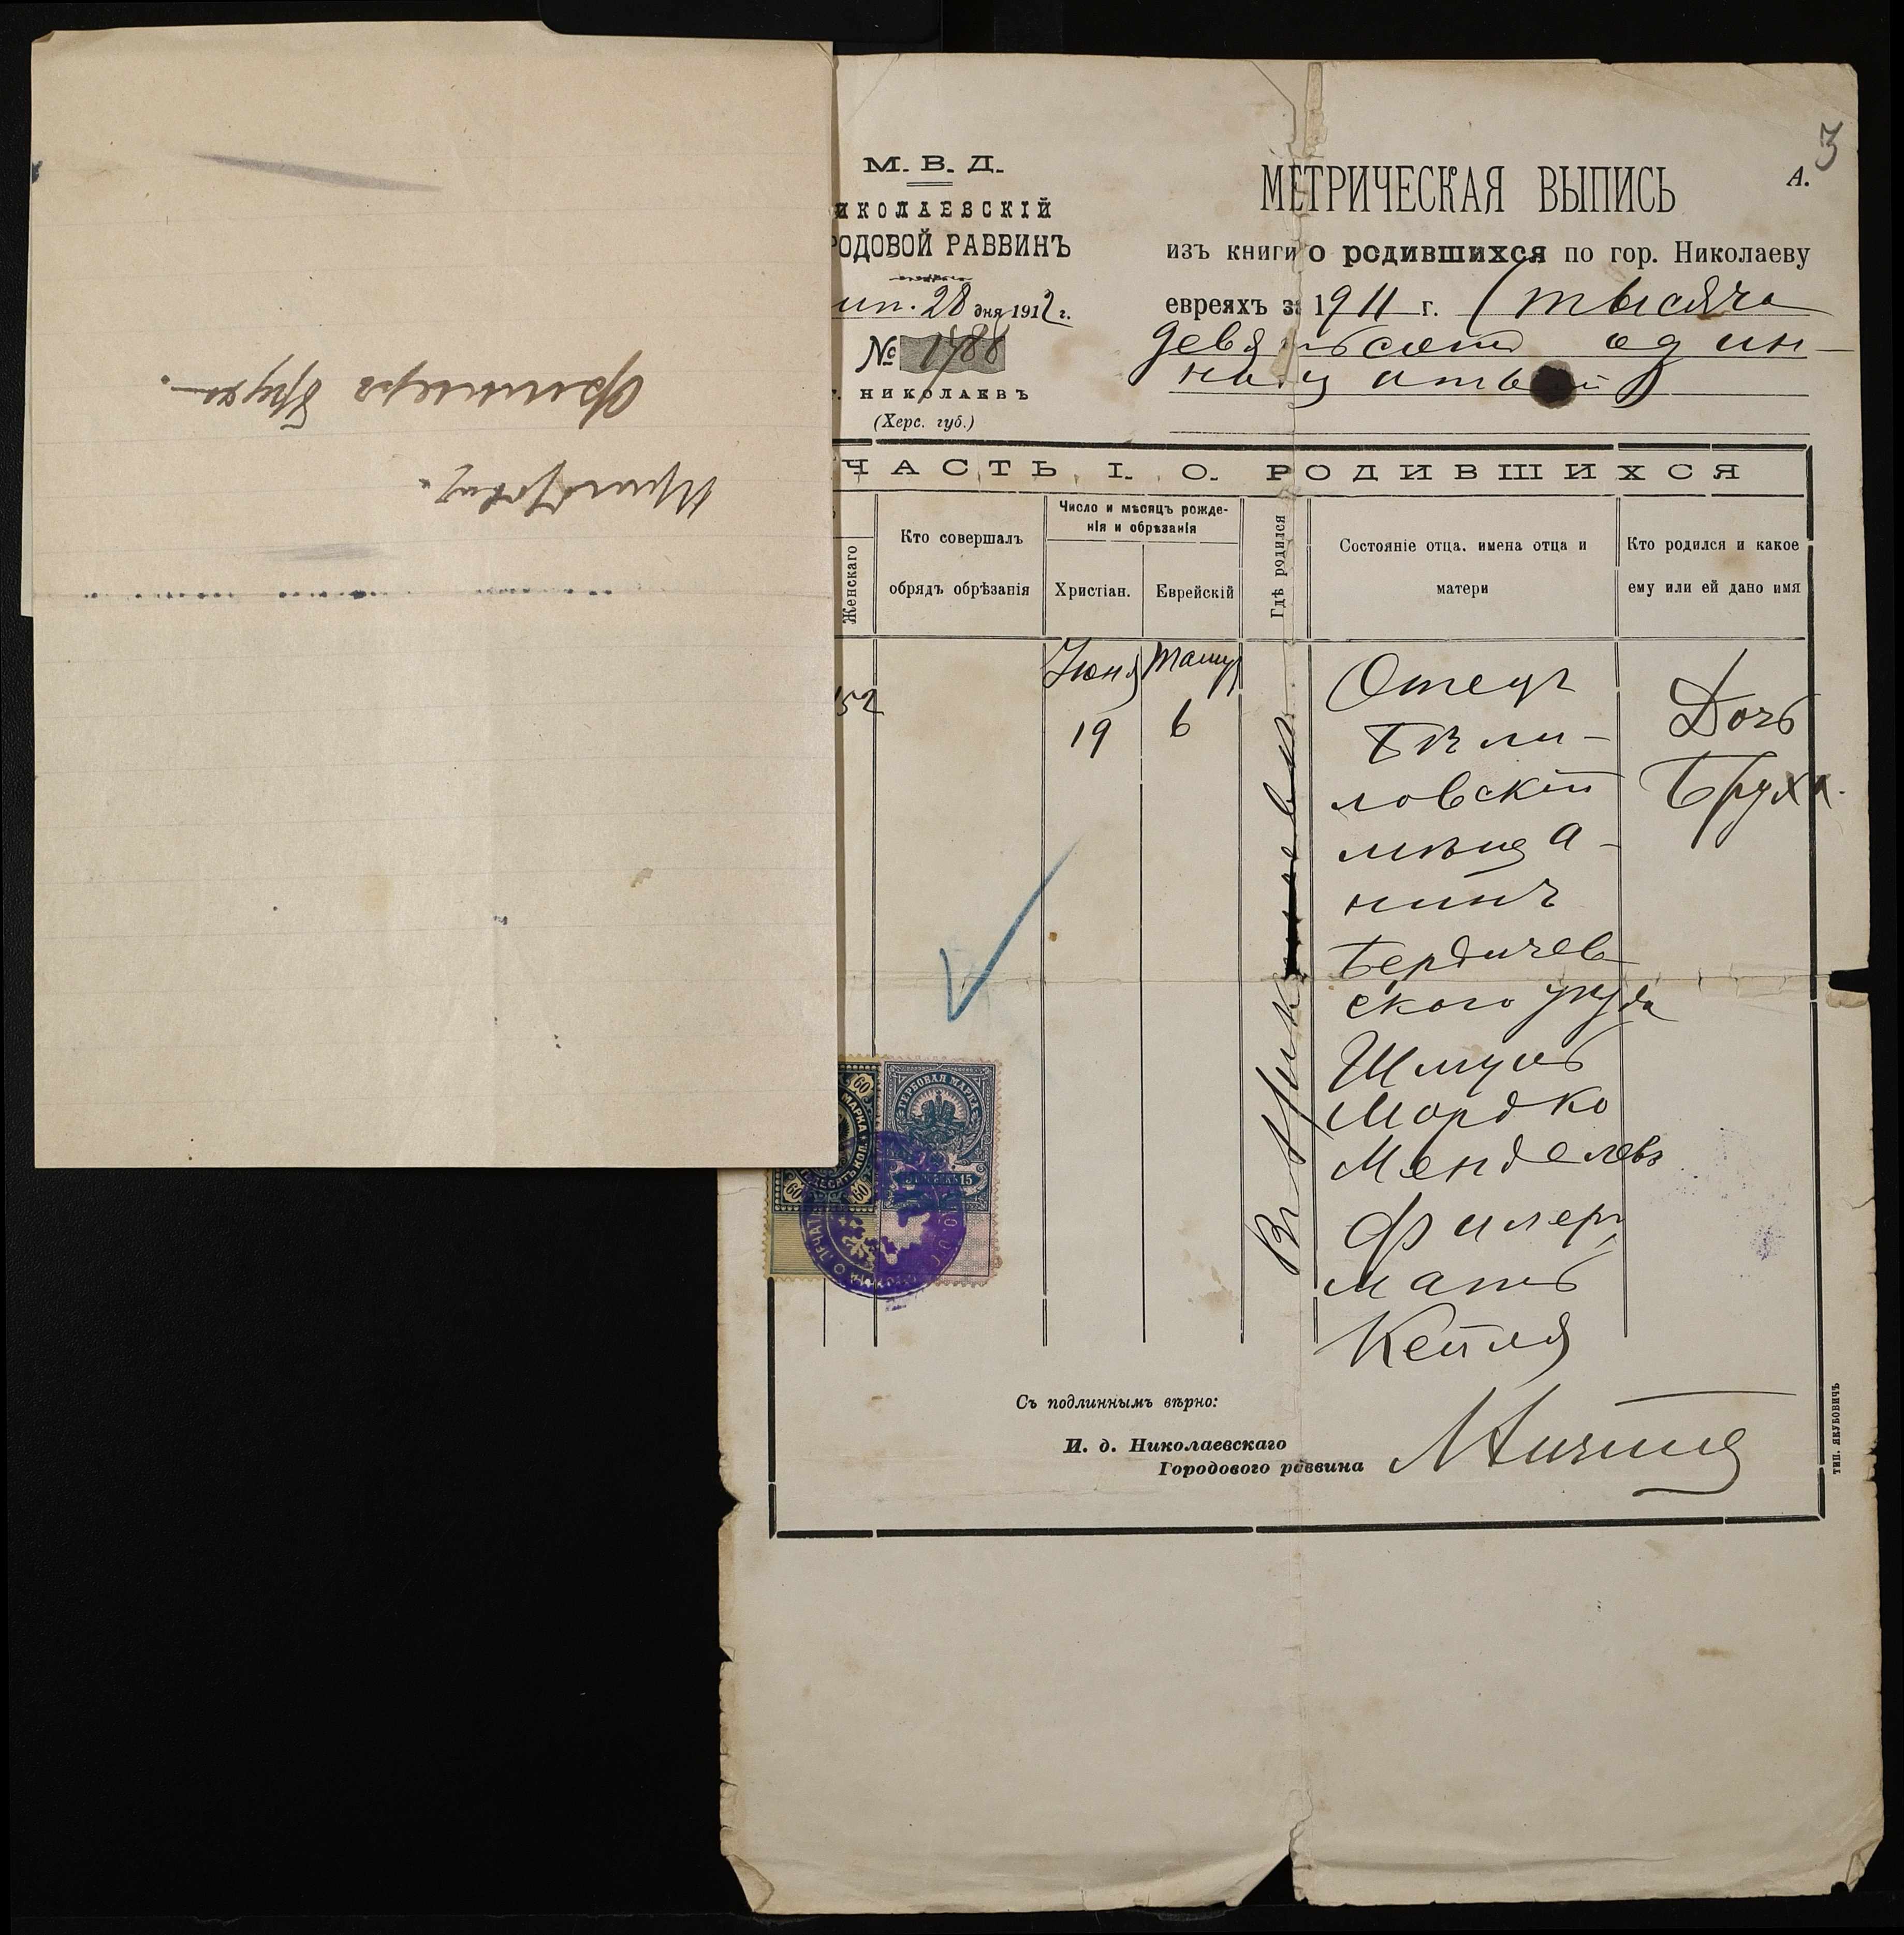 Фельлеръ Бруха.
3
М. В. Д.
ИКОЛАЕВСКІЙ
РОДОВОЙ РАВВИНЪ
28 дня 1912 г.
№ 1788
г. НИКОЛАЕВЪ
(Херс. губ.)
МЕТРИЧЕСКАЯ ВЫПИСЬ
А.
изъ книги о родившихся по гор. Николаеву
евреяхъ за 1911 г. (тысяча
девятьсотъ один-
надцатый)
ЧАСТЬ I. О. РОДИВШИХСЯ
Женскаго
Кто совершалъ
обрядъ обрѣзанія
Число и мѣсяцъ рожде-
нія и обрѣзанія
Христіан.
Еврейскій
Гдѣ родился
Состояніе отца, имена отца и
матери
Кто родился и какое
ему или ей дано имя
152
Іюня
19
Тамуз
6
Въ Николаевѣ
Отецъ
Бѣли-
ловскій
мѣща-
нинъ
Бердичев
скаго уѣзда
Шмуль
Мордко
Менделевъ
Филеръ,
мать
Кейля
Дочь
Бруха.
ГЕРБОВАЯ МАРКА
МАРКА
60
60
60
КОП.
15
Съ подлиннымъ вѣрно:
И. д. Николаевскаго
Городового раввина
ТИП. ЯКУБОВИЧЪ